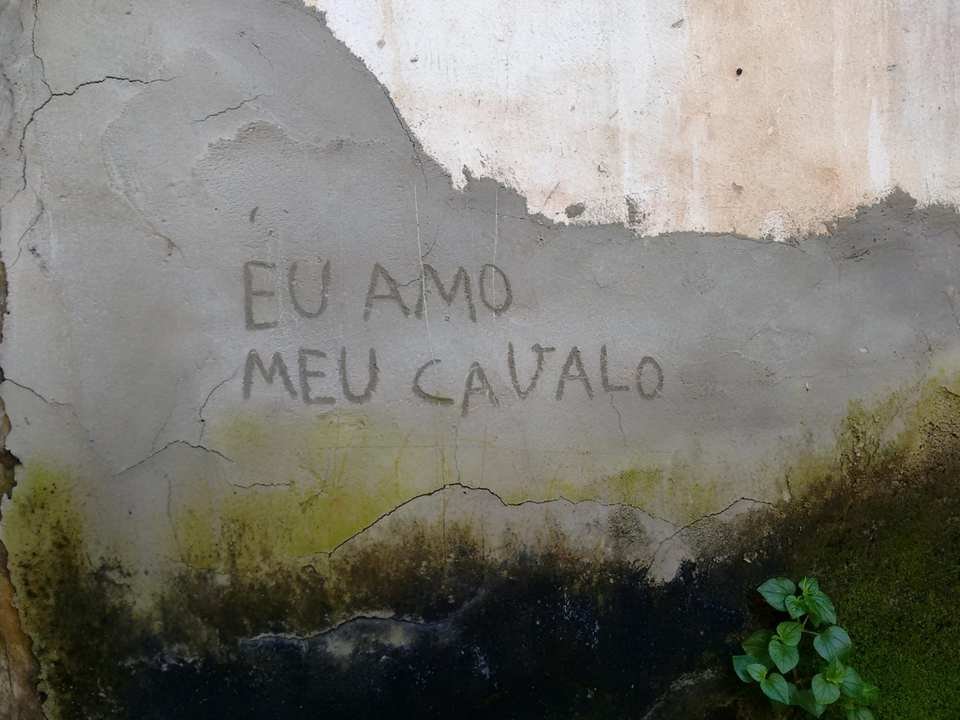 EU AMO
MEU CAVALO